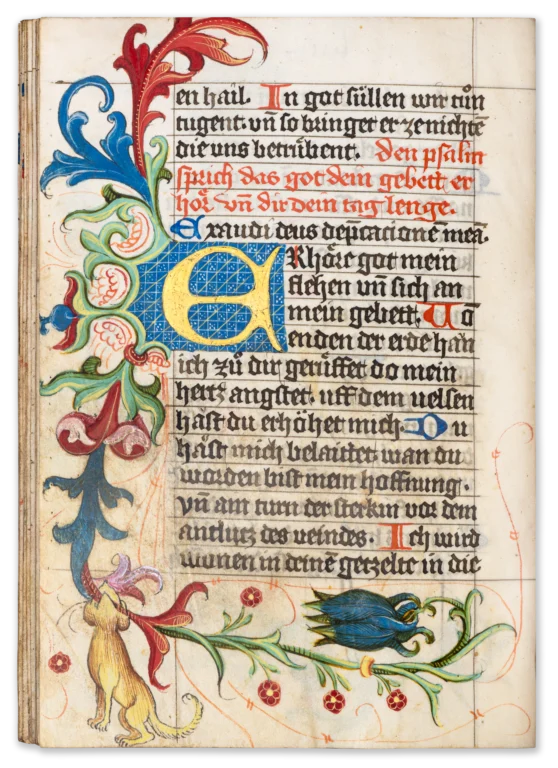 en hail. In got süllen wir tůn
tugent. vn̄ so bringet er ze nichtē
die uns betrůbent. Den psalm
sprich das got dein gebett er
hör. Vn̄ dir dein tag lenge.
Exaudi deus dep̄cationē meā.
ERhöre got mein
flehen vn̄ sich an
mein gebett. Uō
enden der erde han
ich zů dir gerůffet do mein
hertz angstet. uff dem uelsen
hāst du erhöhet mich. Du
hāst mich belaittet wan du
worden bist mein hoffnung.
vn̄ am turn der sterkin vor dem
antlutz des veindes. Ich wird
wonen in deinē getzelte in die